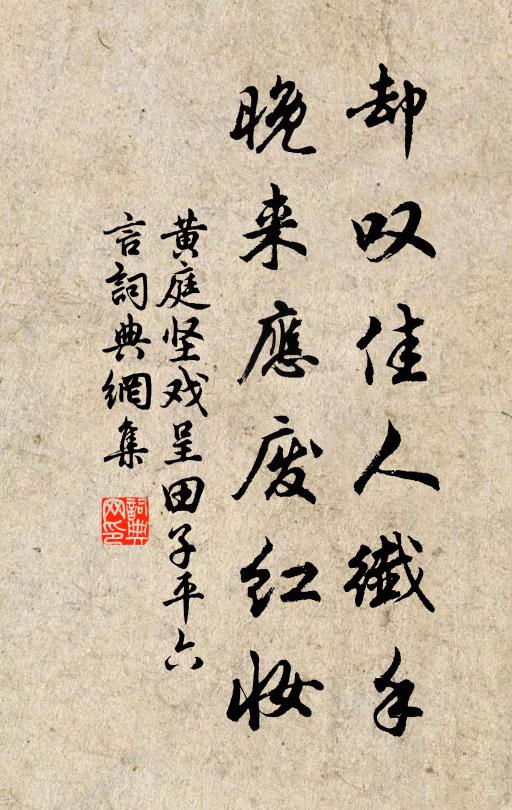 却叹佳人纤手
晚来應废红妆
黄庭坚戏呈田子平六
言詞典網集
詞典
网印